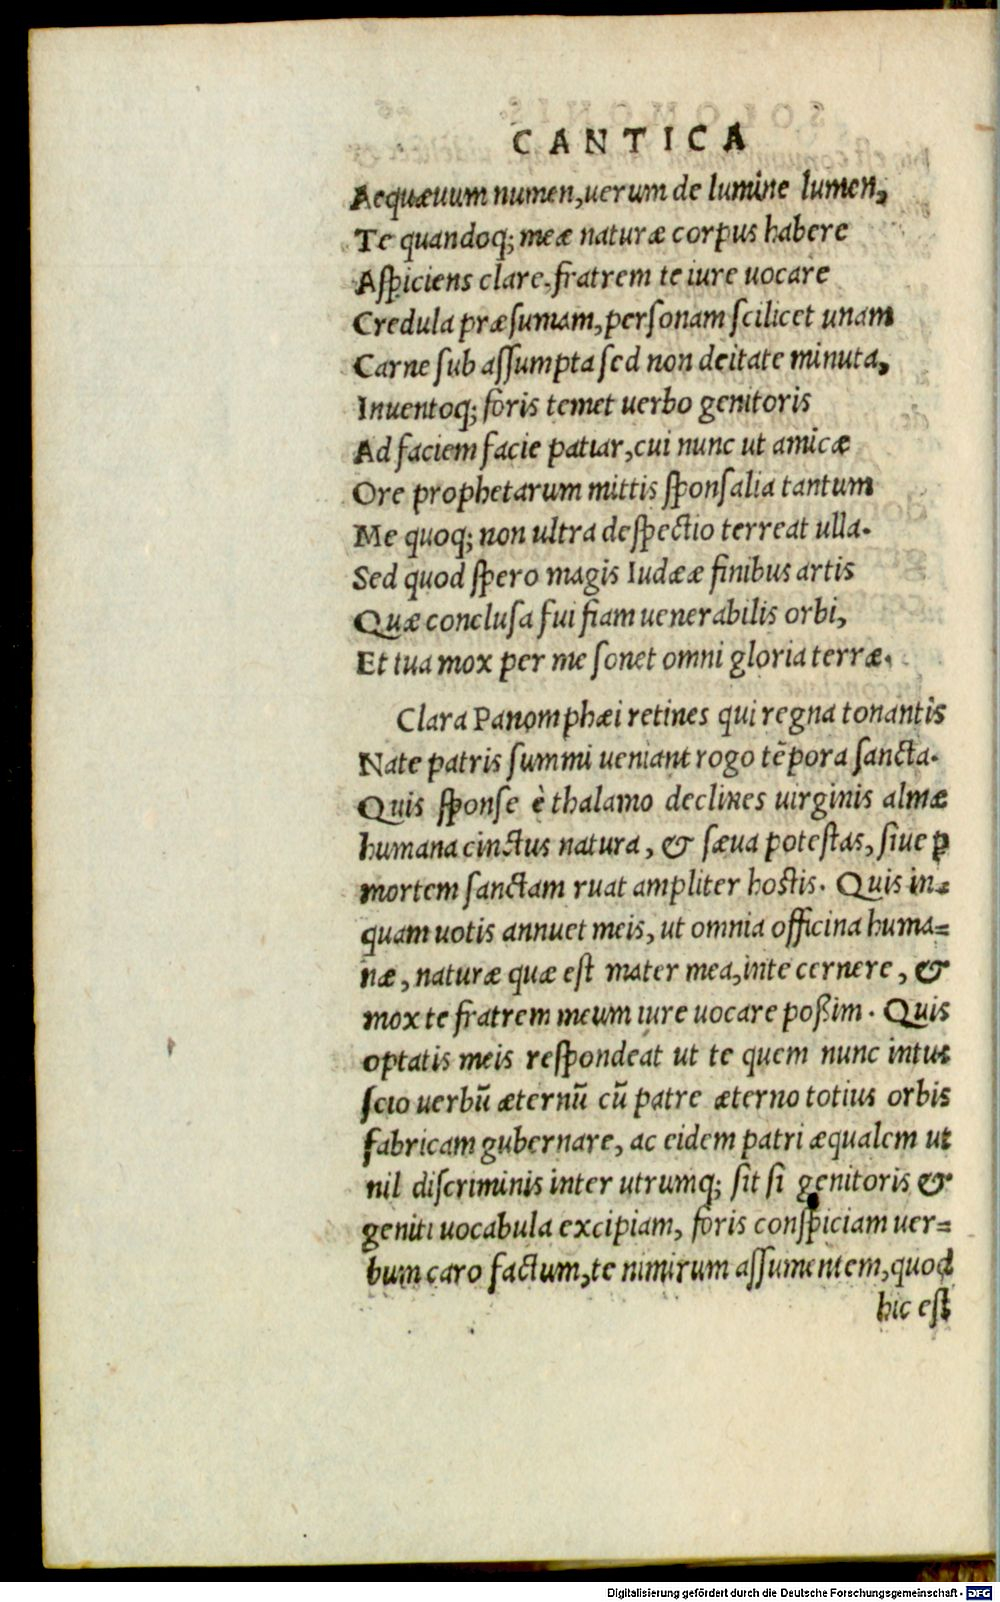 CANTICA
Aequæuum numen, uerum de lumine lumen,
Te quandoq; meæ naturæ corpus habere
Aſpiciens clare, fratrem te iure uocare
Credula præſumam, perſonam ſcilicet unam
Carne ſub aſſumpta ſed non deitate minuta,
Inuentoq; foris temet uerbo genitoris
Ad faciem facie patiar, cui nunc ut amicæ
Ore prophetarum mittis ſponſalia tantum
Me quoq; non ultra deſpectio terreat ulla.
Sed quod ſpero magis Iudææ finibus artis
Quæ concluſa fui fiam uenerabilis orbi,
Et tua mox per me ſonet omni gloria terræ.
Clara Panomphæi retines qui regna tonantis
Nate patris ſummi ueniant rogo tēpora ſancta.
Quis ſponſe è thalamo declines uirginis almæ
humana cinctus natura, & ſæua poteſtas, ſiue ꝑ
mortem ſanctam ruat ampliter hoſtis. Quis in=
quam uotis annuet meis, ut omnia officina huma=
næ, naturæ quæ eſt mater mea, in te cernere, &
mox te fratrem meum iure uocare poßim. Quis
optatis meis reſpondeat ut te quem nunc intus
ſcio uerbū æternū cū patre æterno totius orbis
fabricam gubernare, ac eidem patri æqualem ut
nil diſcriminis inter utrumq; ſit ſi genitoris &
geniti uocabula excipiam, foris conſpiciam uer=
bum caro factum, te nimirum aſſumentem, quod
hic eſt
Digitalisierung gefördert durch die Deutsche Forschungsgemeinschaft - DFG